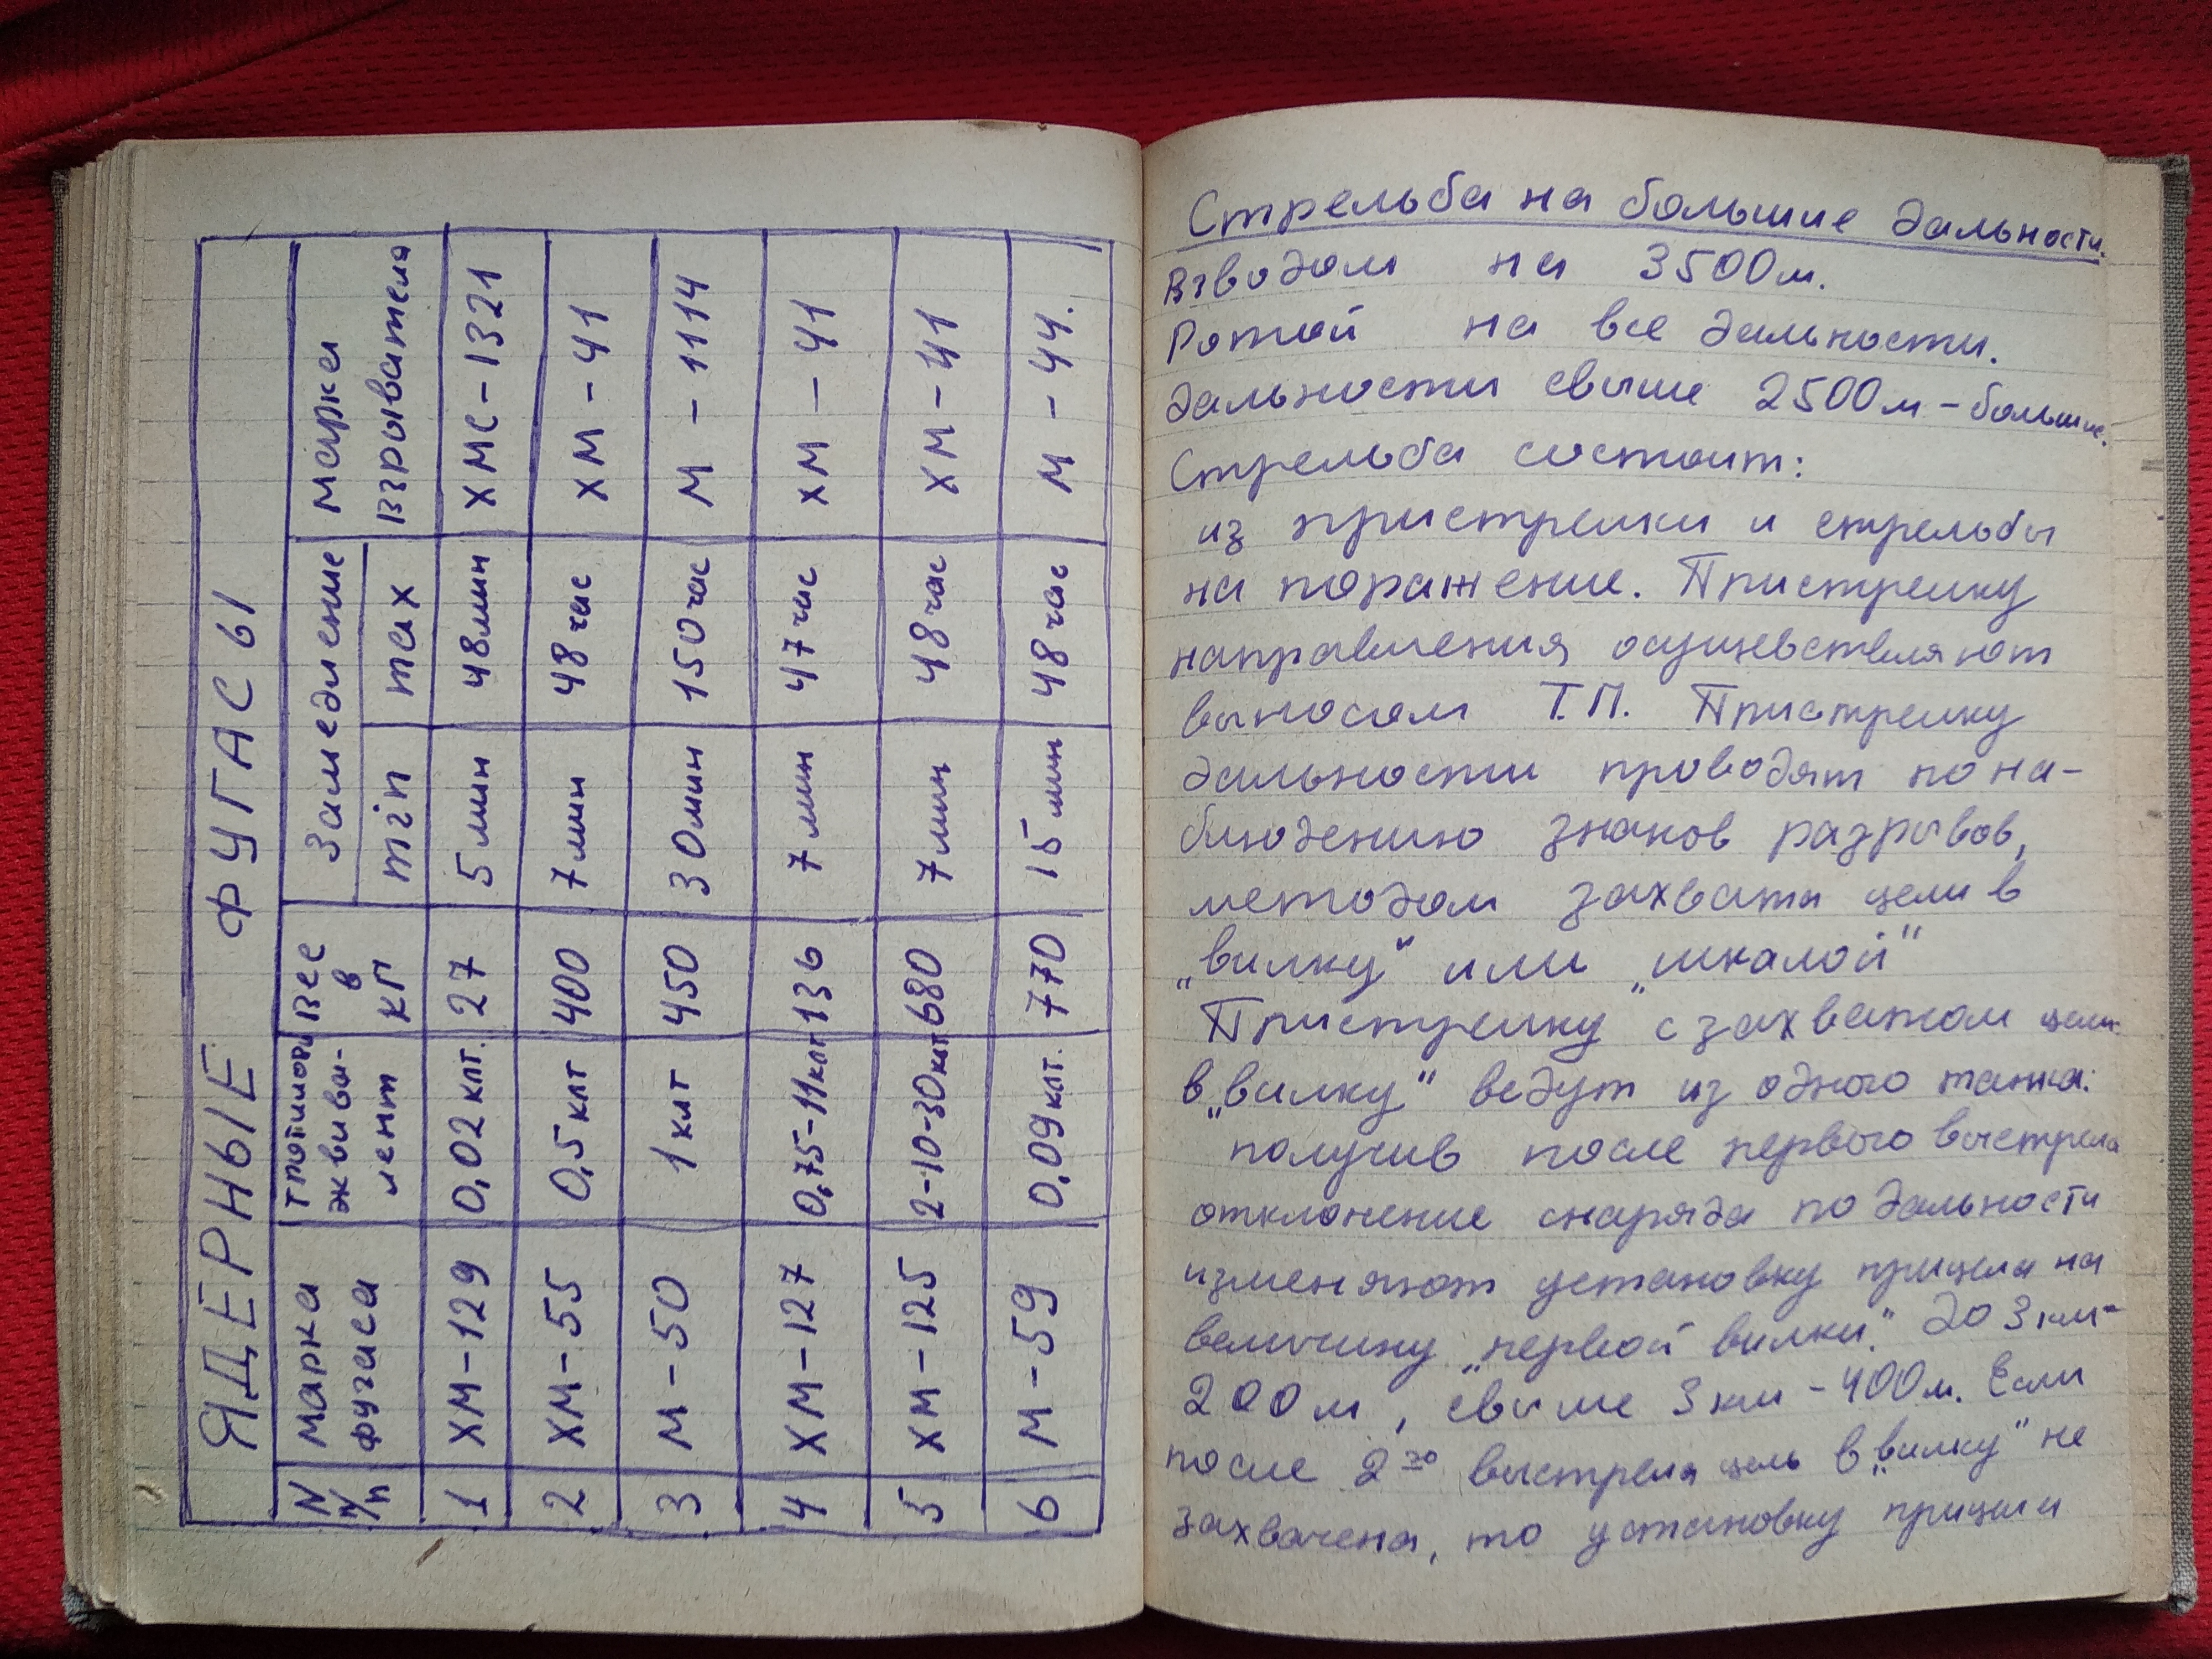 ЯДЕРНЫЕ ФУГАСЫ
N п/п | марка фугаса | тротиловы эквива-лент | вес в кг | Замедление min | max | марка взрывателя
1 | ХМ-129 | 0,02 клт. | 27 | 5 мин | 48 мин | ХМС-1321
2 | ХМ-55 | 0,5 клт | 400 | 7 мин | 48 час | ХМ-41
3 | М-50 | 1 клт | 450 | 30 мин | 150 час | М-1114
4 | ХМ-127 | 0,75-11 клт | 136 | 7 мин | 47 час | ХМ-41
5 | ХМ-125 | 2-10-30 клт | 680 | 7 мин | 48 час | ХМ-41
6 | М-59 | 0,09 клт. | 770 | 15 мин | 48 час | М-44.
Стрельба на большие дальности.
Взводом на 3500м.
Ротой на все дальности.
Дальности свыше 2500м - большие.
Стрельба состоит:
из пристрелки и стрельбы
на поражение. Пристрелку
направления осуществляют
выносом Т.П. Пристрелку
дальности проводят по на-
блюдению знаков разрывов,
методом захвата цели в
„вилку" или „шкалой"
Пристрелку с захватом цели
в „вилку" ведут из одного танка:
получив после первого выстрела
отклонение снаряда по дальности
изменяют установку прицела на
величину „первой вилки". до 3 км-
200м, свыше 3 км - 400м. Если
после 2го выстрела цель в „вилку" не
захвачена, то установку прицела